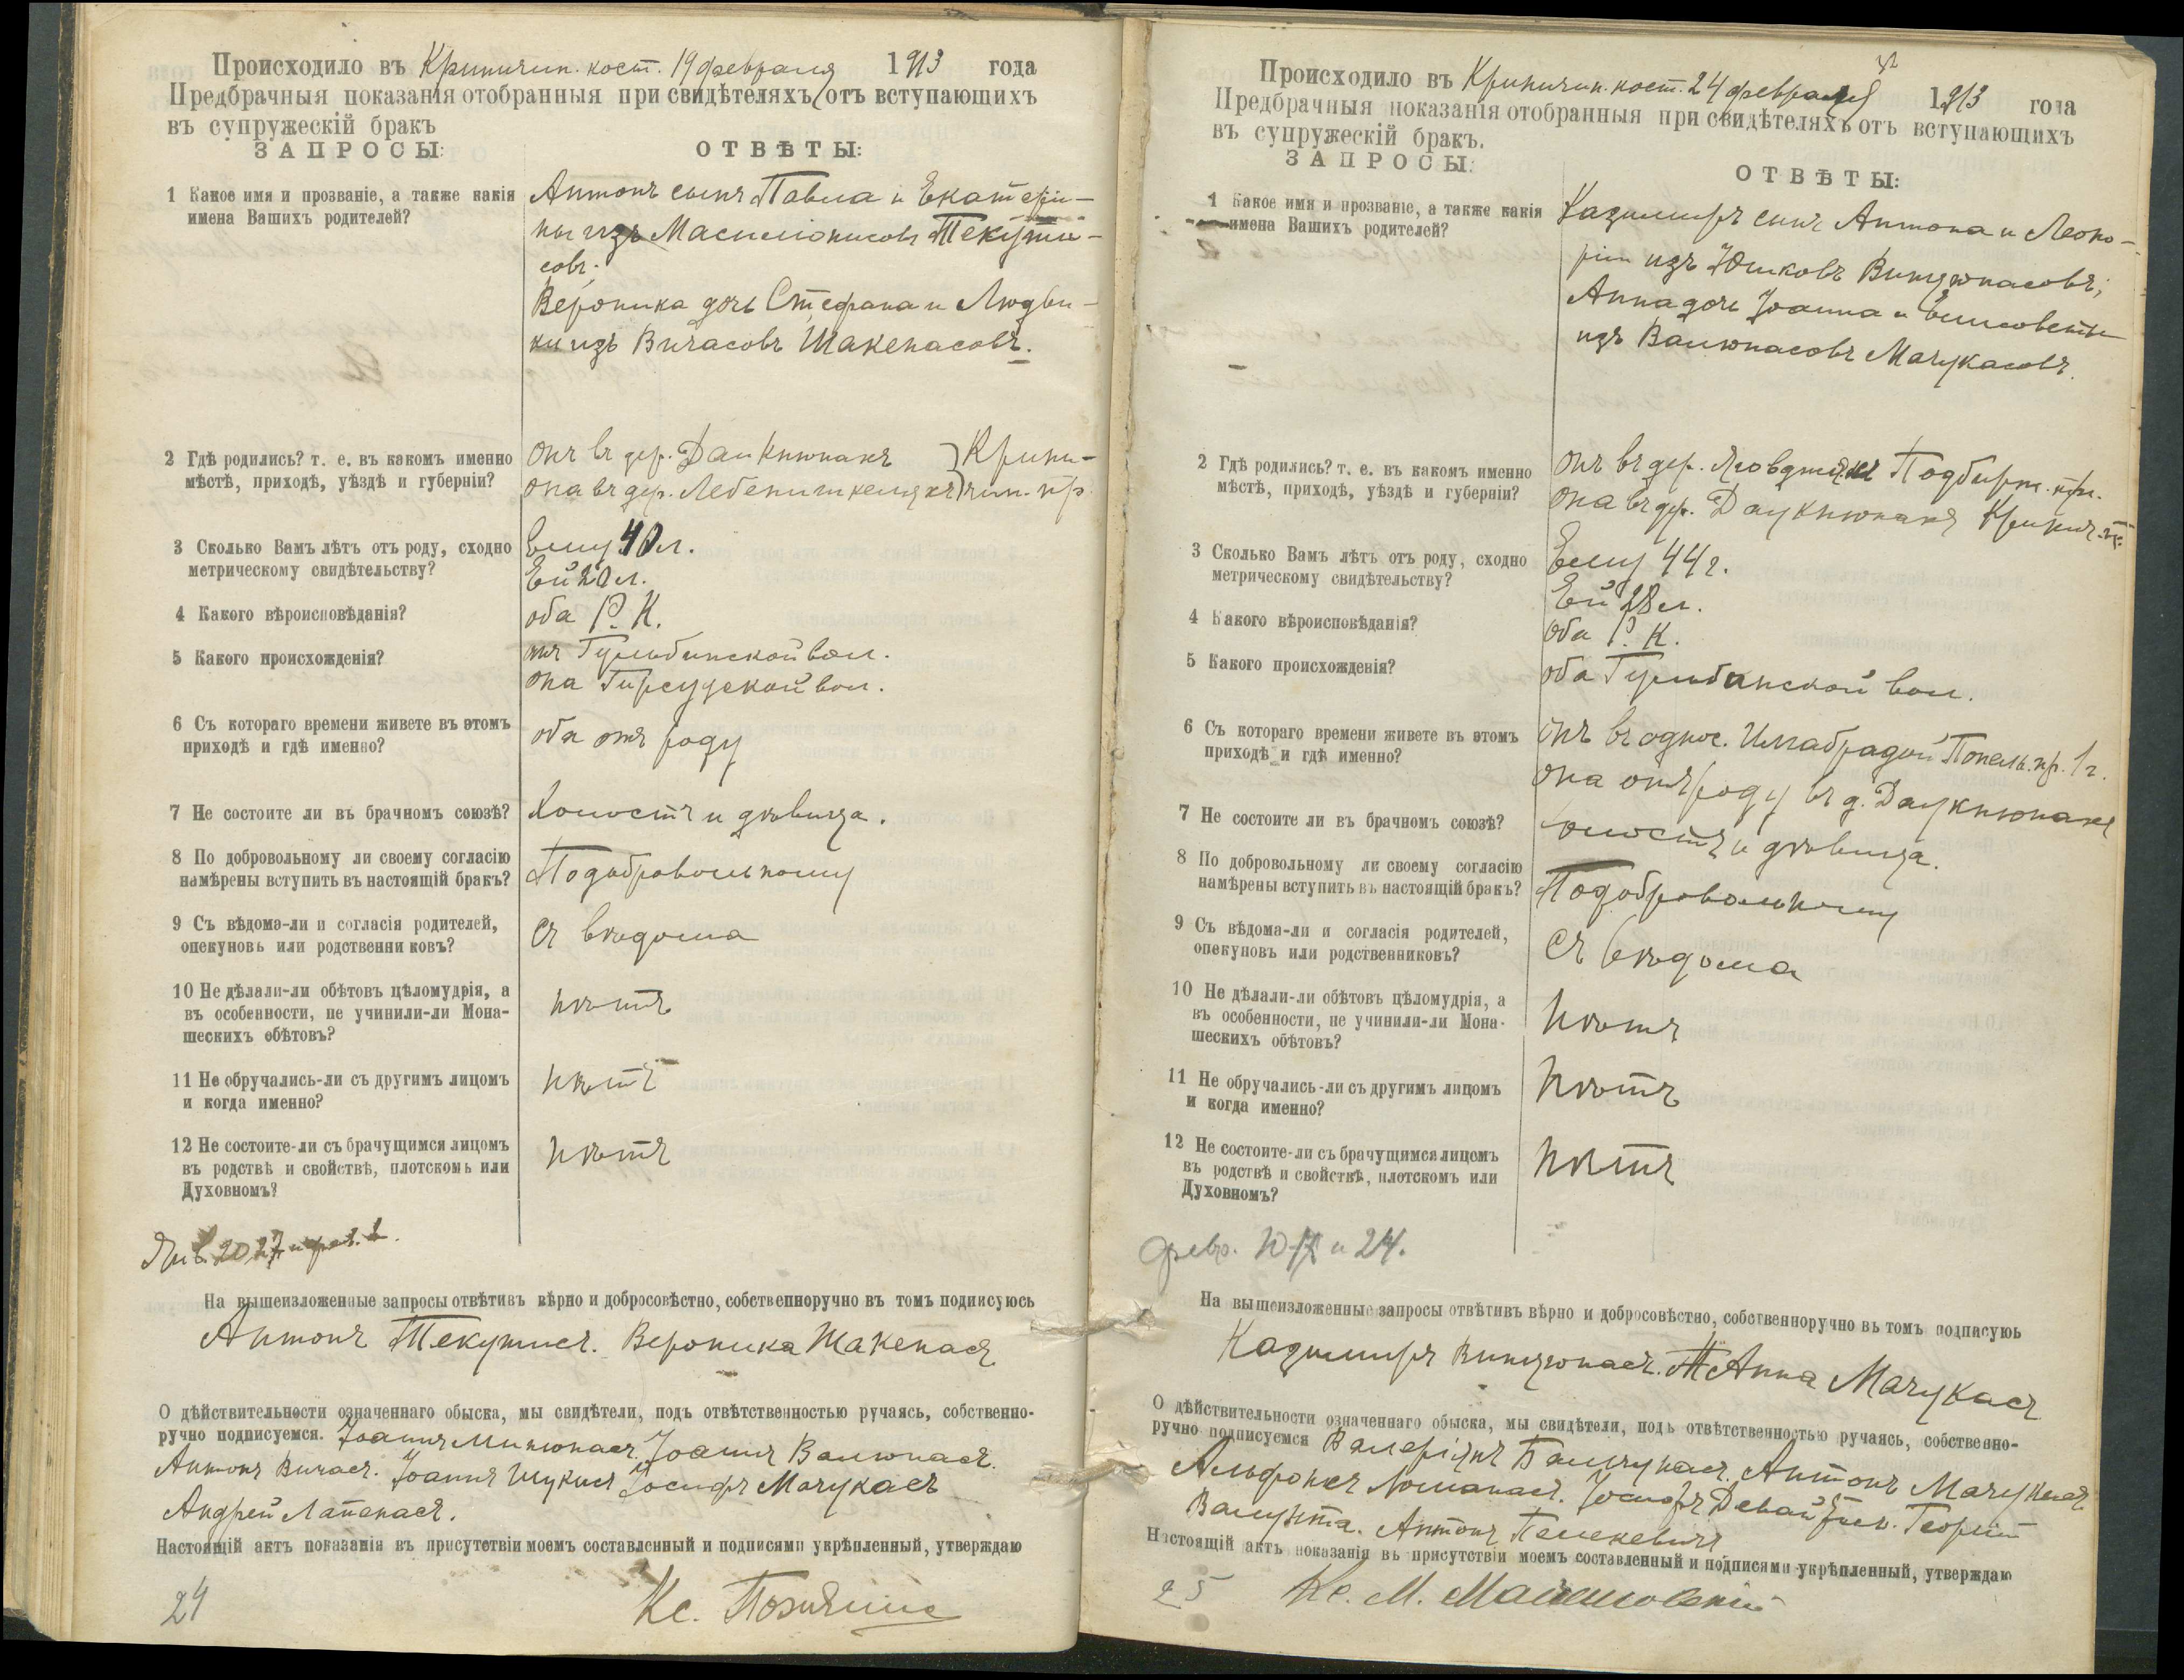 Происходило въ Криничин. кост. 19 февраля 1913 года
Предбрачныя показанія отобранныя при свидѣтеляхъ отъ вступающихъ
въ супружескій бракъ
ЗАПРОСЫ: ОТВѢТЫ:
1 Какое имя и прозваніе, а также какія
имена Вашихъ родителей?
Антонъ сынъ Павла и Екатери-
ны изъ Масилионисовъ Текути-
совъ.
Вероника дочь Стефана и Людви-
ки изъ Вичасовъ Шакенасовъ.
2 Гдѣ родились? т. е. въ какомъ именно
мѣстѣ, приходѣ, уѣздѣ и губерніи?
онъ въ дер. Даукнюнахъ } Крини-
она въ дер. } чин. пр.
3 Сколько Вамъ лѣтъ отъ роду, сходно
метрическому свидѣтельству?
Ему 40 л.
Ей 20 л.
4 Какого вѣроисповѣданія?
оба Р. К.
5 Какого происхожденія?
онъ Гульбинской вол.
она Гирсудской вол.
6 Съ котораго времени живете въ этомъ
приходѣ и гдѣ именно?
оба отъ роду
7 Не состоите ли въ брачномъ союзѣ?
Холостъ и дѣвица.
8 По добровольному ли своему согласію
намѣрены вступить въ настоящій бракъ?
По добровольному
9 Съ вѣдома-ли и согласія родителей,
опекуновъ или родственни ковъ?
съ вѣдома
10 Не дѣлали-ли обѣтовъ цѣломудрія, а
въ особенности, не учинили-ли Мона-
шескихъ обѣтовъ?
нѣтъ
11 Не обручались-ли съ другимъ лицомъ
и когда именно?
нѣтъ
12 Не состоите-ли съ брачущимся лицомъ
въ родствѣ и свойствѣ, плотскомъ или
Духовномъ?
нѣтъ
Янв. 20 27 и фев. 2.
На вышеизложенные запросы отвѣтивъ вѣрно и добросовѣстно, собственноручно въ томъ подписуюсь
Антонъ Текутисъ. Вероника Шакенасъ
О дѣйствительности означеннаго обыска, мы свидѣтели, подъ отвѣтственностью ручаясь, собственно-
ручно подписуемся. Іоаннъ Милюнасъ. Іоаннъ Валюнасъ.
Антонъ Вичасъ. Іоаннъ Шукисъ Іосифъ Мачукасъ
Андрей Лапенасъ.
Настоящій актъ показанія въ присутствіи моемъ составленный и подписями укрѣпленный, утверждаю
24 Кс.
Происходило въ Криничин. кост. 24 февраля 1913 года
Предбрачныя показанія отобранныя при свидѣтеляхъ отъ вступающихъ
въ супружескій бракъ.
ЗАПРОСЫ: ОТВѢТЫ:
1 Какое имя и прозваніе, а также какія
имена Вашихъ родителей?
Казимиръ сынъ Антона и Леоно-
ріи изъ Юшковъ Винцюнасовъ;
Анна дочь Іоанна и Елисоветы
изъ Валюнасовъ Мачукасовъ.
2 Гдѣ родились? т. е. въ какомъ именно
мѣстѣ, приходѣ, уѣздѣ и губерніи?
онъ въ дер. Подбирж. пр.
она въ дер. Даукнюнахъ Кринич. п.
3 Сколько Вамъ лѣтъ отъ роду, сходно
метрическому свидѣтельству?
Ему 44 г.
Ей 28 л.
4 Какого вѣроисповѣданія?
оба Р. К.
5 Какого происхожденія?
оба Гульбинской вол.
6 Съ котораго времени живете въ этомъ
приходѣ и гдѣ именно?
онъ въ однос. Попель. пр. 1 г.
она отъ роду въ д. Даукнюнахъ
7 Не состоите ли въ брачномъ союзѣ?
холостъ и дѣвица.
8 По добровольному ли своему согласію
намѣрены вступить въ настоящій бракъ?
По добровольному
9 Съ вѣдома-ли и согласія родителей,
опекуновъ или родственниковъ?
Съ вѣдома
10 Не дѣлали-ли обѣтовъ цѣломудрія, а
въ особенности, не учинили-ли Мона-
шескихъ обѣтовъ?
нѣтъ
11 Не обручались-ли съ другимъ лицомъ
и когда именно?
нѣтъ
12 Не состоите-ли съ брачущимся лицомъ
въ родствѣ и свойствѣ, плотскомъ или
Духовномъ?
нѣтъ
февр. 10 17 и 24.
На вышеизложенные запросы отвѣтивъ вѣрно и добросовѣстно, собственноручно въ томъ подписуюь
Казимиръ Винцюнасъ. Анна Мачукасъ
О дѣйствительности означеннаго обыска, мы свидѣтели, подъ отвѣтственностью ручаясь, собственно-
ручно подписуемся Валеріянъ Бальчунасъ. Антонъ Мачукасъ
Альфонсъ Ломанасъ. Іосифъ Георгій
Валунта. Антонъ Пелекевичъ
Настоящій актъ показанія въ присутствіи моемъ составленный и подписями укрѣпленный, утверждаю
25 Кс. М.